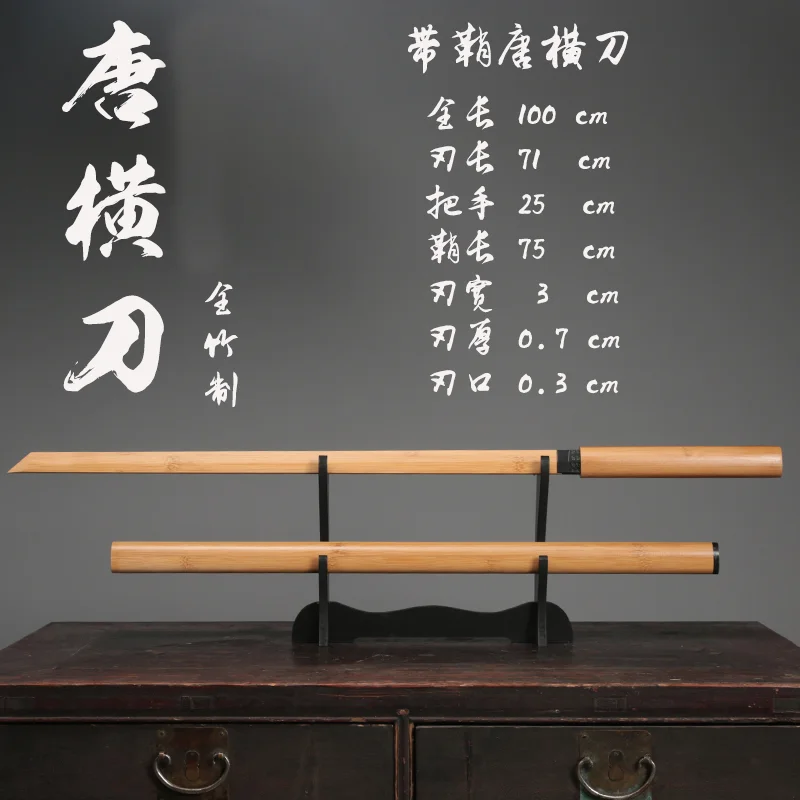 唐横刀
全竹制
带鞘唐横刀
全长 100 cm
刃长 71 cm
把手 25 cm
鞘长 75 cm
刃宽 3 cm
刃厚 0.7 cm
刃口 0.3 cm